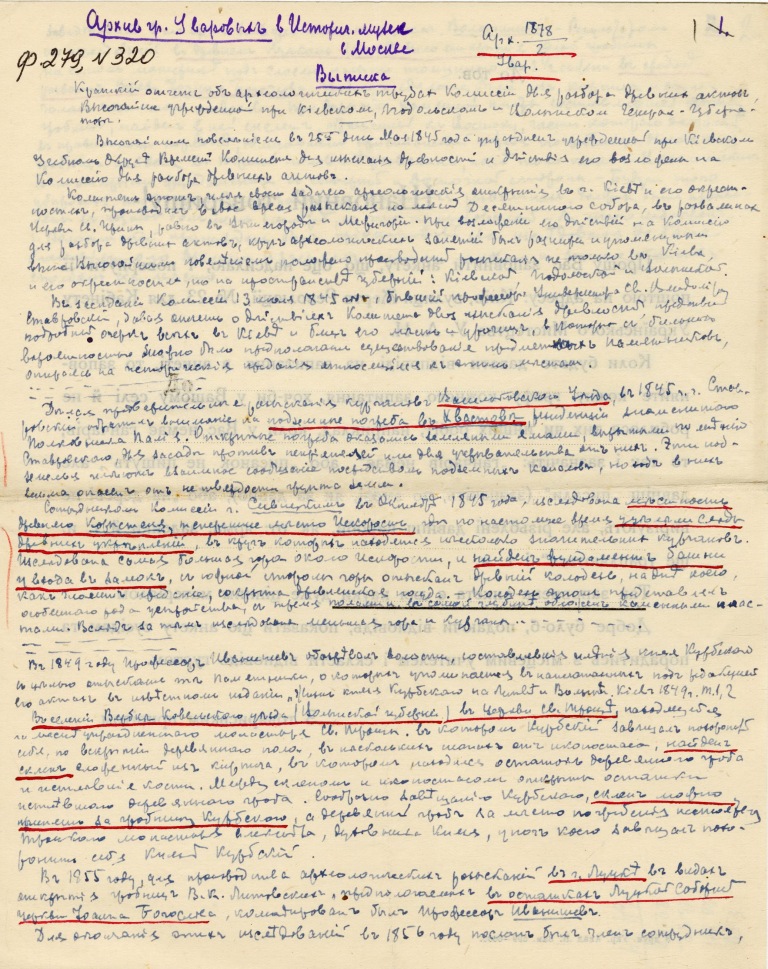 Архив гр. Уваровых в Историч. музее
в Москве
Ф. 279, N 320
Арх. 1878/2
Увар.
1
Выписка
Краткий отчет об археологических трудах Комиссии для разбора древних актов,
Высочайше учрежденной при Кіевском, Подольском и Волынском Генерал-Губерна-
торе.
Высочайшим повелѣнием в 25й день Мая 1845 года учрежден учрежденный при Кіевском
Учебном Округѣ Времен. Комитет для изыскания древностей и дѣйствія его возложены на
Комиссію для разбора древних актов.
Комитет этот имѣл своею задачею археологическія открытія в г. Кіевѣ и его окрест-
ностях, производил в свое время разыскания на мѣстѣ Десятинного собора, в развалинах
Церкви Св. Ирины, равно в Вышгородѣ и Межигорьи. При возложеніи его дѣйствій на Комиссію
для разбора древних актов, круг археологических занятій был расширен и упомянутым
выше Высочайшим повелѣнием положено производить разыскания не только в Кіевѣ,
и его окрестностях, но на пространствѣ губерній: Кіевской, Подольской и Волынской.
В засѣдании Комиссіи 13 июня 1845 года бывшій профессор Университета Св. Владиміра
Ставровскій, давая отчет о дѣйствіях Комитета для изыскания древностей представил
подробный очерк всех в Кіевѣ и близ его мѣст и урочищ, в которых с большою
вероятностью можно было предполагать существование предметных памятников,
опираясь на историческія предания относящіяся к этим мѣстам.
Делая предварительные разыскания курганов Васильковского уѣзда, в 1845 г. Став-
ровскій обратил внимание на подземные погреба в Хвастовѣ, резиденціи знаменитого
Полковника Палія. Открытые погреба оказались земляными ямами, вырытыми по мнѣнію
Ставровского для засады против непріятелей или для укрывательства от них. Эти под-
земелья имѣют взаимное сообщение посредством подземных каналов, но ход в них
весьма опасен от нетвердости грунта земли.
Сотрудником Комиссіи г. в октябрѣ 1845 года, изслѣдована мѣстность
древнего Коростеня, теперешнее мѣсто Искорость, где по настоящее время уцѣлели следы
древних укрѣплений, в кругу которых находится несколько значительных курганов.
Изслѣдована самая большая гора около Искорости, и найден фундамент башни
у входа в замок, с южной стороны горы отыскан древній колодезь, на днѣ коего,
как гласит предание, сокрыта древлянская посуда. Колодезь этот представлял
особенного рода устройство, с тремя в самой глубине, обложен каменными плас-
тами. Вслѣд за тем изслѣдована меньшая гора и курган.
В 1849 году Профессор Иванишев объѣздил волости, составлявшія имѣния князя Курбского
с цѣлью отыскать те памятники, о которых упоминается в напечатанных под редакціей
его актах в извѣстном издании „Жизнь князя Курбского на Литвѣ и Волыни. Кіев 1849 г. т. 1, 2
В селении Вербка Ковельского уѣзда (Волынской губерніи) в Церкви Св. Троицы, находящейся
на мѣстѣ упраздненного монастыря Св. Троицы, в котором Курбскій завѣщал похоронить
себя, по вскрытіи деревянного пола, в нескольких шагах от иконостаса, найден
склеп сложенный из кирпича, в котором находились остатки деревянного гроба
и истлевшие кости. Между склепом и иконостасом открыты остатки
истлѣвшего деревянного гроба. Сообразно завѣщанію Курбского, склеп можно
принять за гробницу Курбского, а деревянный гроб за мѣсто погребения настоятеля
Троицкого монастыря Александра, духовника князя, у ног коего завещал похо-
ронить себя Князь Курбскій.
В 1855 году, для производства археологических разысканій в г. Луцкѣ в видах
открытия гробниц В. К. Литовских, предполагаемых в остатках Луцкой Соборной
церкви Іоанна Богослова, командирован был Профессор Иванишев.
Для окончания этих изслѣдований в 1856 году послан был член сотрудник,